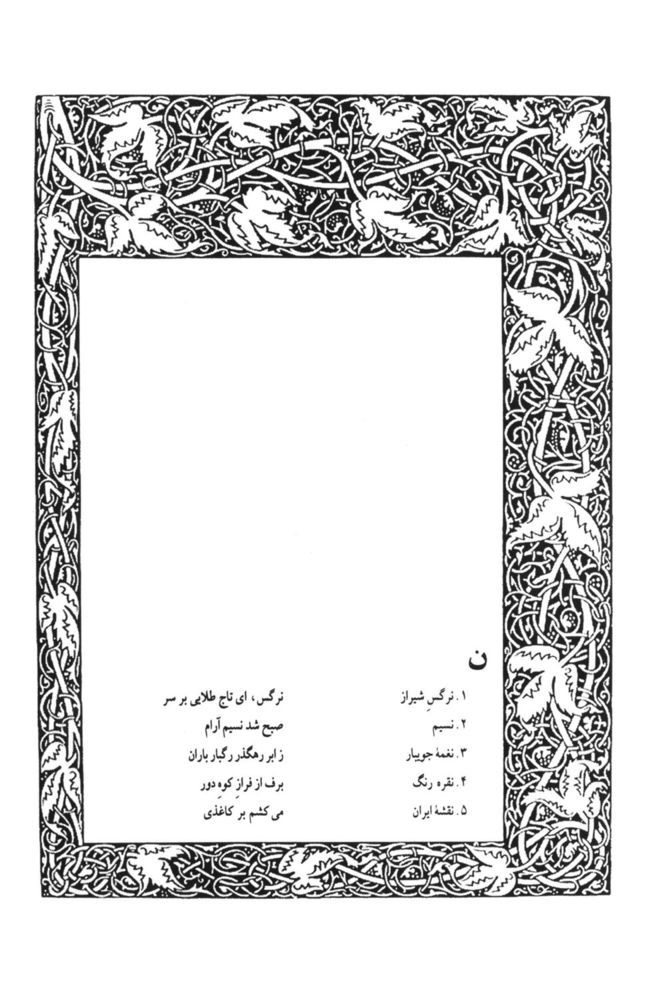 ن
۱. نرگسِ شیراز نرگس، ای تاج طلایی بر سرِ
۲. نسیم صبح شد نسیم آرام
۳. نغمهٔ جویبار ز ابر رهگذر رگبار باران
۴. نقره رنگ برف از فرازِ کوهِ دور
۵. نقشهٔ ایران می‌کشم بر کاغذی